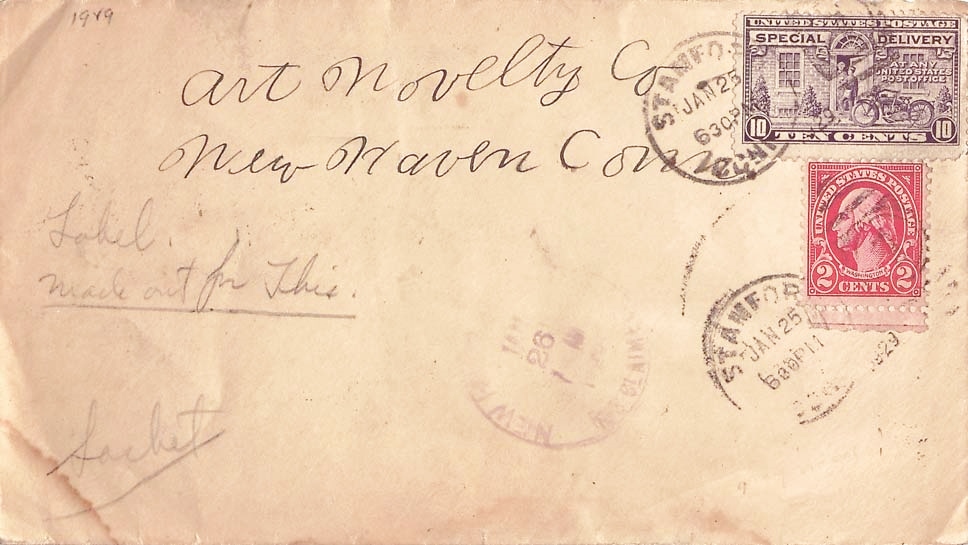 1949
Art Novelty Co
New Haven Conn
Label.
made out for This.
UNITED STATES POSTAGE
SPECIAL DELIVERY
AT ANY
UNITED STATES
POST OFFICE
10 TEN CENTS 10
STAMFOR
JAN 25
630PM
UNITED STATES POSTAGE
WASHINGTON
2 CENTS 2
STAMFOR
JAN 25
1929
JAN
26
NEW